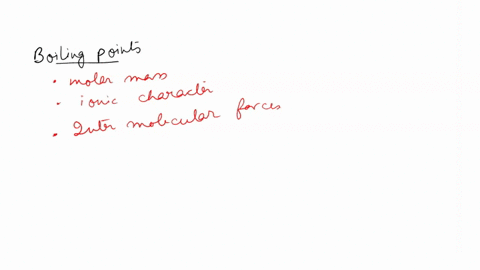 Boiling points
• molar mass
• ionic character
• Inter molecular forces